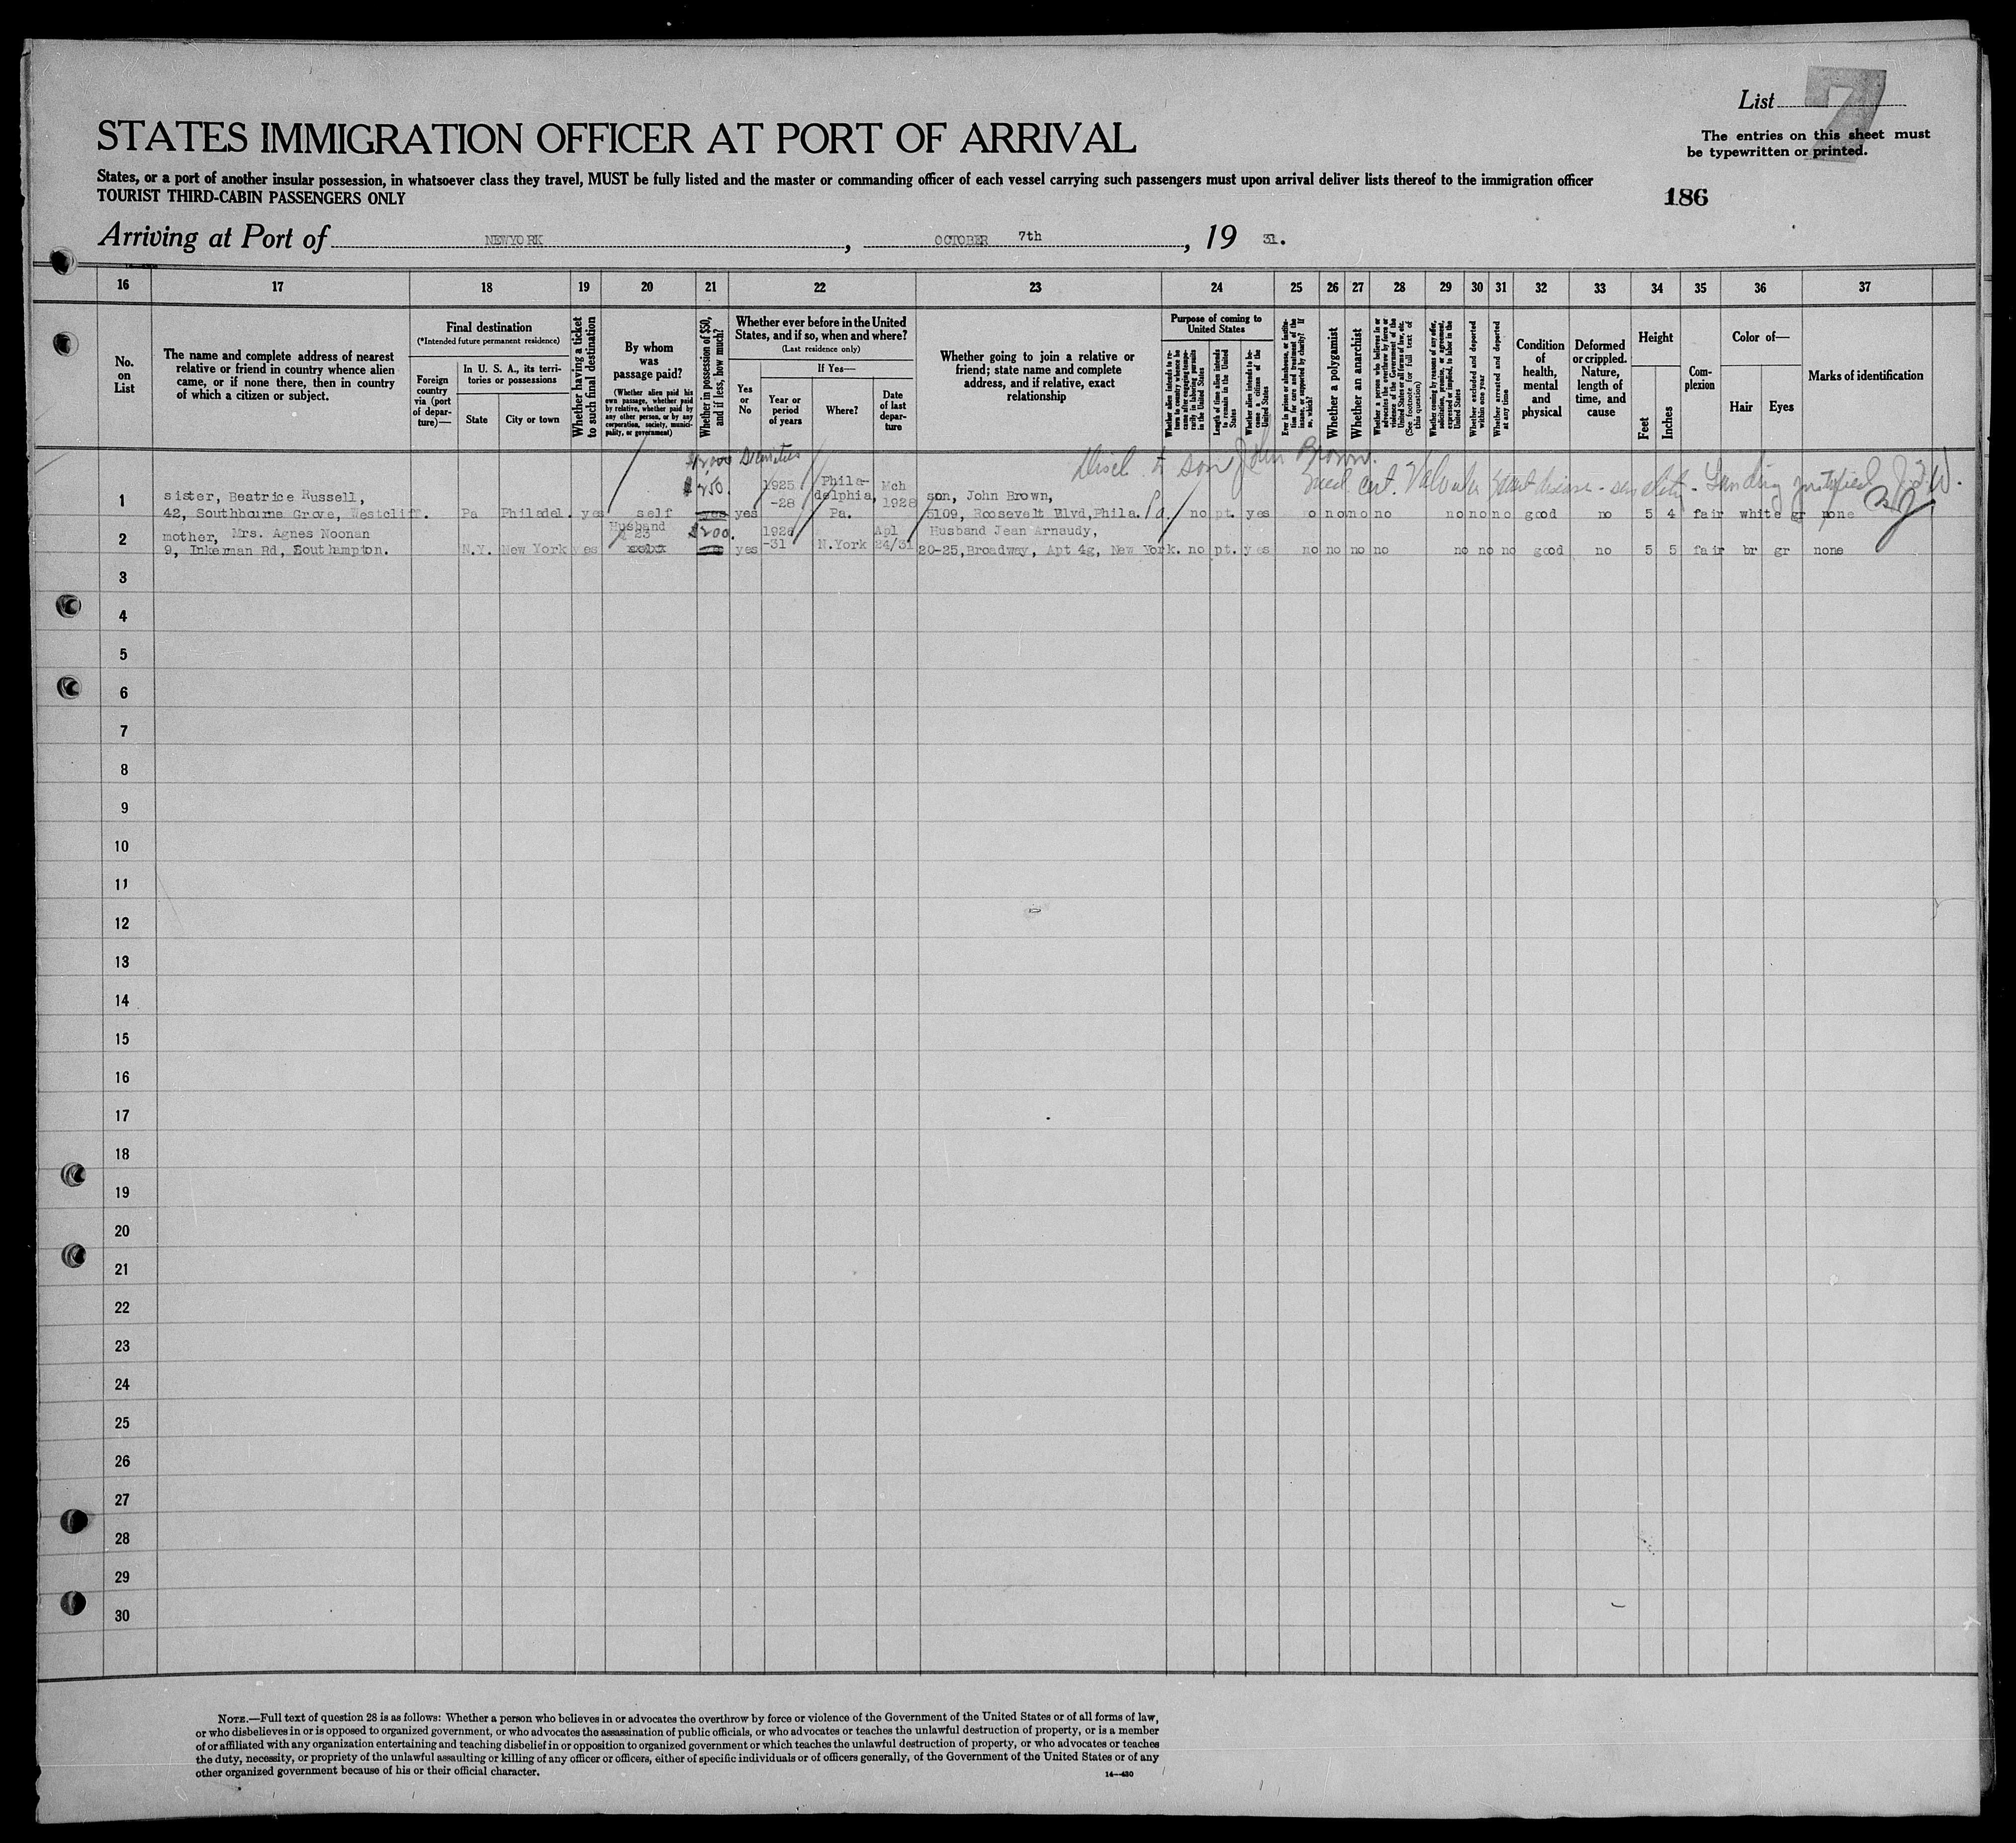 List 7
STATES IMMIGRATION OFFICER AT PORT OF ARRIVAL
The entries on this sheet must
be typewritten or printed.
States, or a port of another insular possession, in whatsoever class they travel, MUST be fully listed and the master or commanding officer of each vessel carrying such passengers must upon arrival deliver lists thereof to the immigration officer
TOURIST THIRD-CABIN PASSENGERS ONLY
186
Arriving at Port of NEWYORK, OCTOBER 7th, 19 31.
16 17 18 19 20 21 22 23 24 25 26 27 28 29 30 31 32 33 34 35 36 37
No. on List
The name and complete address of nearest relative or friend in country whence alien came, or if none there, then in country of which a citizen or subject.
Final destination
(*Intended future permanent residence)
Foreign country via (port of departure)—
In U. S. A., its territories or possessions
State
City or town
Whether having a ticket to such final destination
By whom was passage paid?
(Whether alien paid his own passage, whether paid by relative, whether paid by any other person, or by any corporation, society, municipality, or government)
Whether in possession of $50, and if less, how much?
Whether ever before in the United States, and if so, when and where?
(Last residence only)
Yes or No
If Yes—
Year or period of years
Where?
Date of last departure
Whether going to join a relative or friend; state name and complete address, and if relative, exact relationship
Purpose of coming to United States
Whether alien intends to return to country whence he came after engaging temporarily in laboring pursuits in the United States
Length of time alien intends to remain in the United States
Whether alien intends to become a citizen of the United States
Ever in prison or almshouse, or institution for care and treatment of the insane, or supported by charity? If so, which?
Whether a polygamist
Whether an anarchist
Whether a person who believes in or advocates the overthrow by force or violence of the Government of the United States or all forms of law, etc. (See footnote for full text of this question)
Whether coming by reason of any offer, solicitation, promise, or agreement, expressed or implied, to labor in the United States
Whether excluded and deported within one year
Whether arrested and deported at any time
Condition of health, mental and physical
Deformed or crippled. Nature, length of time, and cause
Height
Feet
Inches
Complexion
Color of—
Hair
Eyes
Marks of identification
Securities
son John Brown.
Med. cert. Valvular heart disease - senility - Landing justified
1 sister, Beatrice Russell, $250. 1925 Phila- Mch son, John Brown,
-28 delphia, 1928
42, Southbourne Grove, Westcliff. Pa Philadel. yes self yes yes Pa. 5109, Roosevelt Blvd, Phila. Pa. no pt. yes no no no no no no no good no 5 4 fair white gr none
2 mother, Mrs. Agnes Noonan Husband $200. 1926 Apl Husband Jean Arnaudy,
9, Inkerman Rd, Southampton. N.Y. New York yes yes -31 N.York 24/31 20-25, Broadway, Apt 4g, New York. no pt. yes no no no no no no no good no 5 5 fair br gr none
3
4
5
6
7
8
9
10
11
12
13
14
15
16
17
18
19
20
21
22
23
24
25
26
27
28
29
30
NOTE.—Full text of question 28 is as follows: Whether a person who believes in or advocates the overthrow by force or violence of the Government of the United States or of all forms of law,
or who disbelieves in or is opposed to organized government, or who advocates the assassination of public officials, or who advocates or teaches the unlawful destruction of property, or is a member
of or affiliated with any organization entertaining and teaching disbelief in or opposition to organized government or which teaches the unlawful destruction of property, or who advocates or teaches
the duty, necessity, or propriety of the unlawful assaulting or killing of any officer or officers, either of specific individuals or of officers generally, of the Government of the United States or of any
other organized government because of his or their official character.
14—430